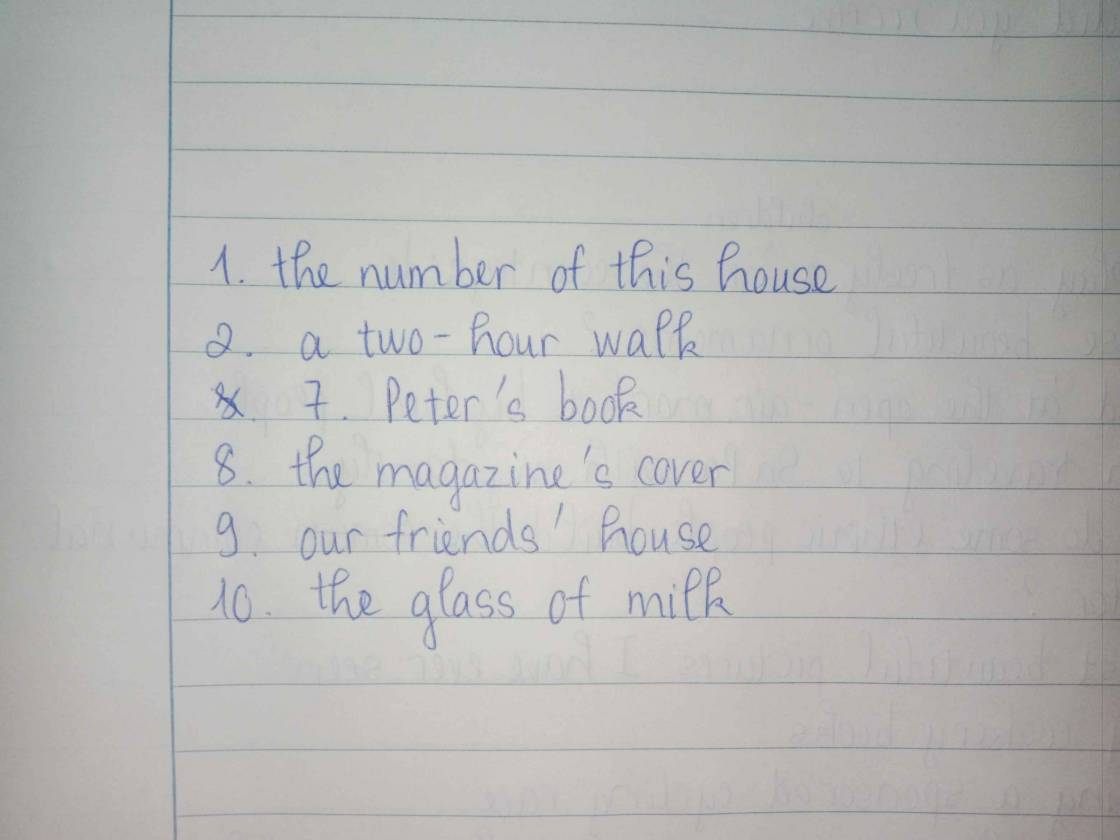 1. the number of this house
2. a two-hour walk
7. Peter's book
8. the magazine's cover
9. our friends' house
10. the glass of milk